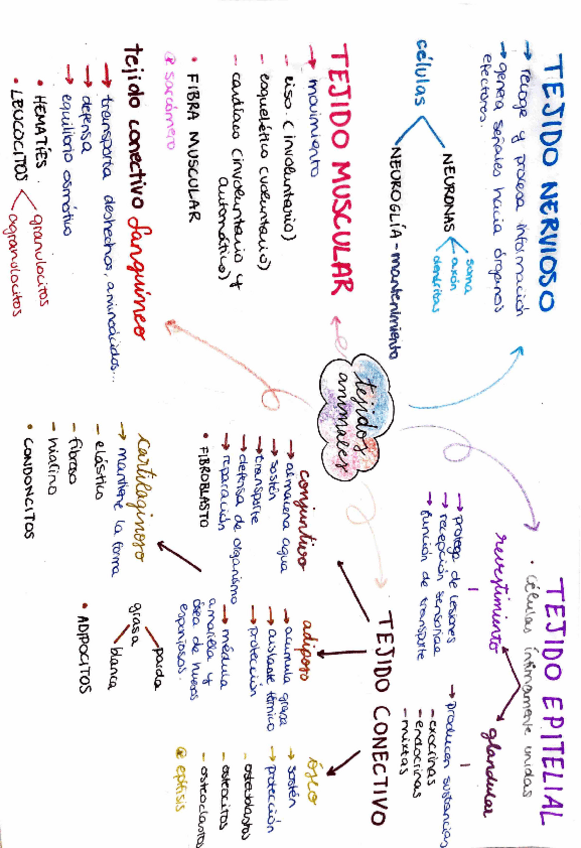 TEJIDO NERVIOSO
→ recoge y procesa información
→ genera señales hacia órganos
efectores.
células
NEURONAS
soma
axón
dendritas
NEUROGLÍA - mantenimiento
TEJIDO MUSCULAR
→ movimiento
- liso (involuntario)
- esquelético (voluntario)
- cardíaco (involuntario y
automático)
• FIBRA MUSCULAR
@ sarcómero
tejido conectivo sanguíneo
→ transporta deshechos, aminoácidos...
→ defensa
→ equilibrio osmótico
• HEMATÍES.
• LEUCOCITOS
granulocitos
agranulocitos
tejidos
animales
TEJIDO EPITELIAL
• células íntimamente unidas
revestimiento
→ protege de lesiones
→ recepción sensorial
→ función de transporte
glandular
→ producen sustancias
- exocrinas
- endocrinas
- mixtas
TEJIDO CONECTIVO
conjuntivo
→ almacena agua
→ sostén
→ transporte
→ defensa de organismo
→ reparación
• FIBROBLASTO
adiposo
→ acumula grasa
→ aislante térmico
→ protección
→ médula
amarilla y
ósea de huesos
esponjosos.
grasa
parda
blanca
• ADIPOCITOS
óseo
→ sostén
→ protección
- osteoblastos
- osteocitos
- osteoclastos
@ epífisis
cartilaginoso
→ mantiene la forma
- elástico
- fibroso
- hialino
• CONDONCITOS